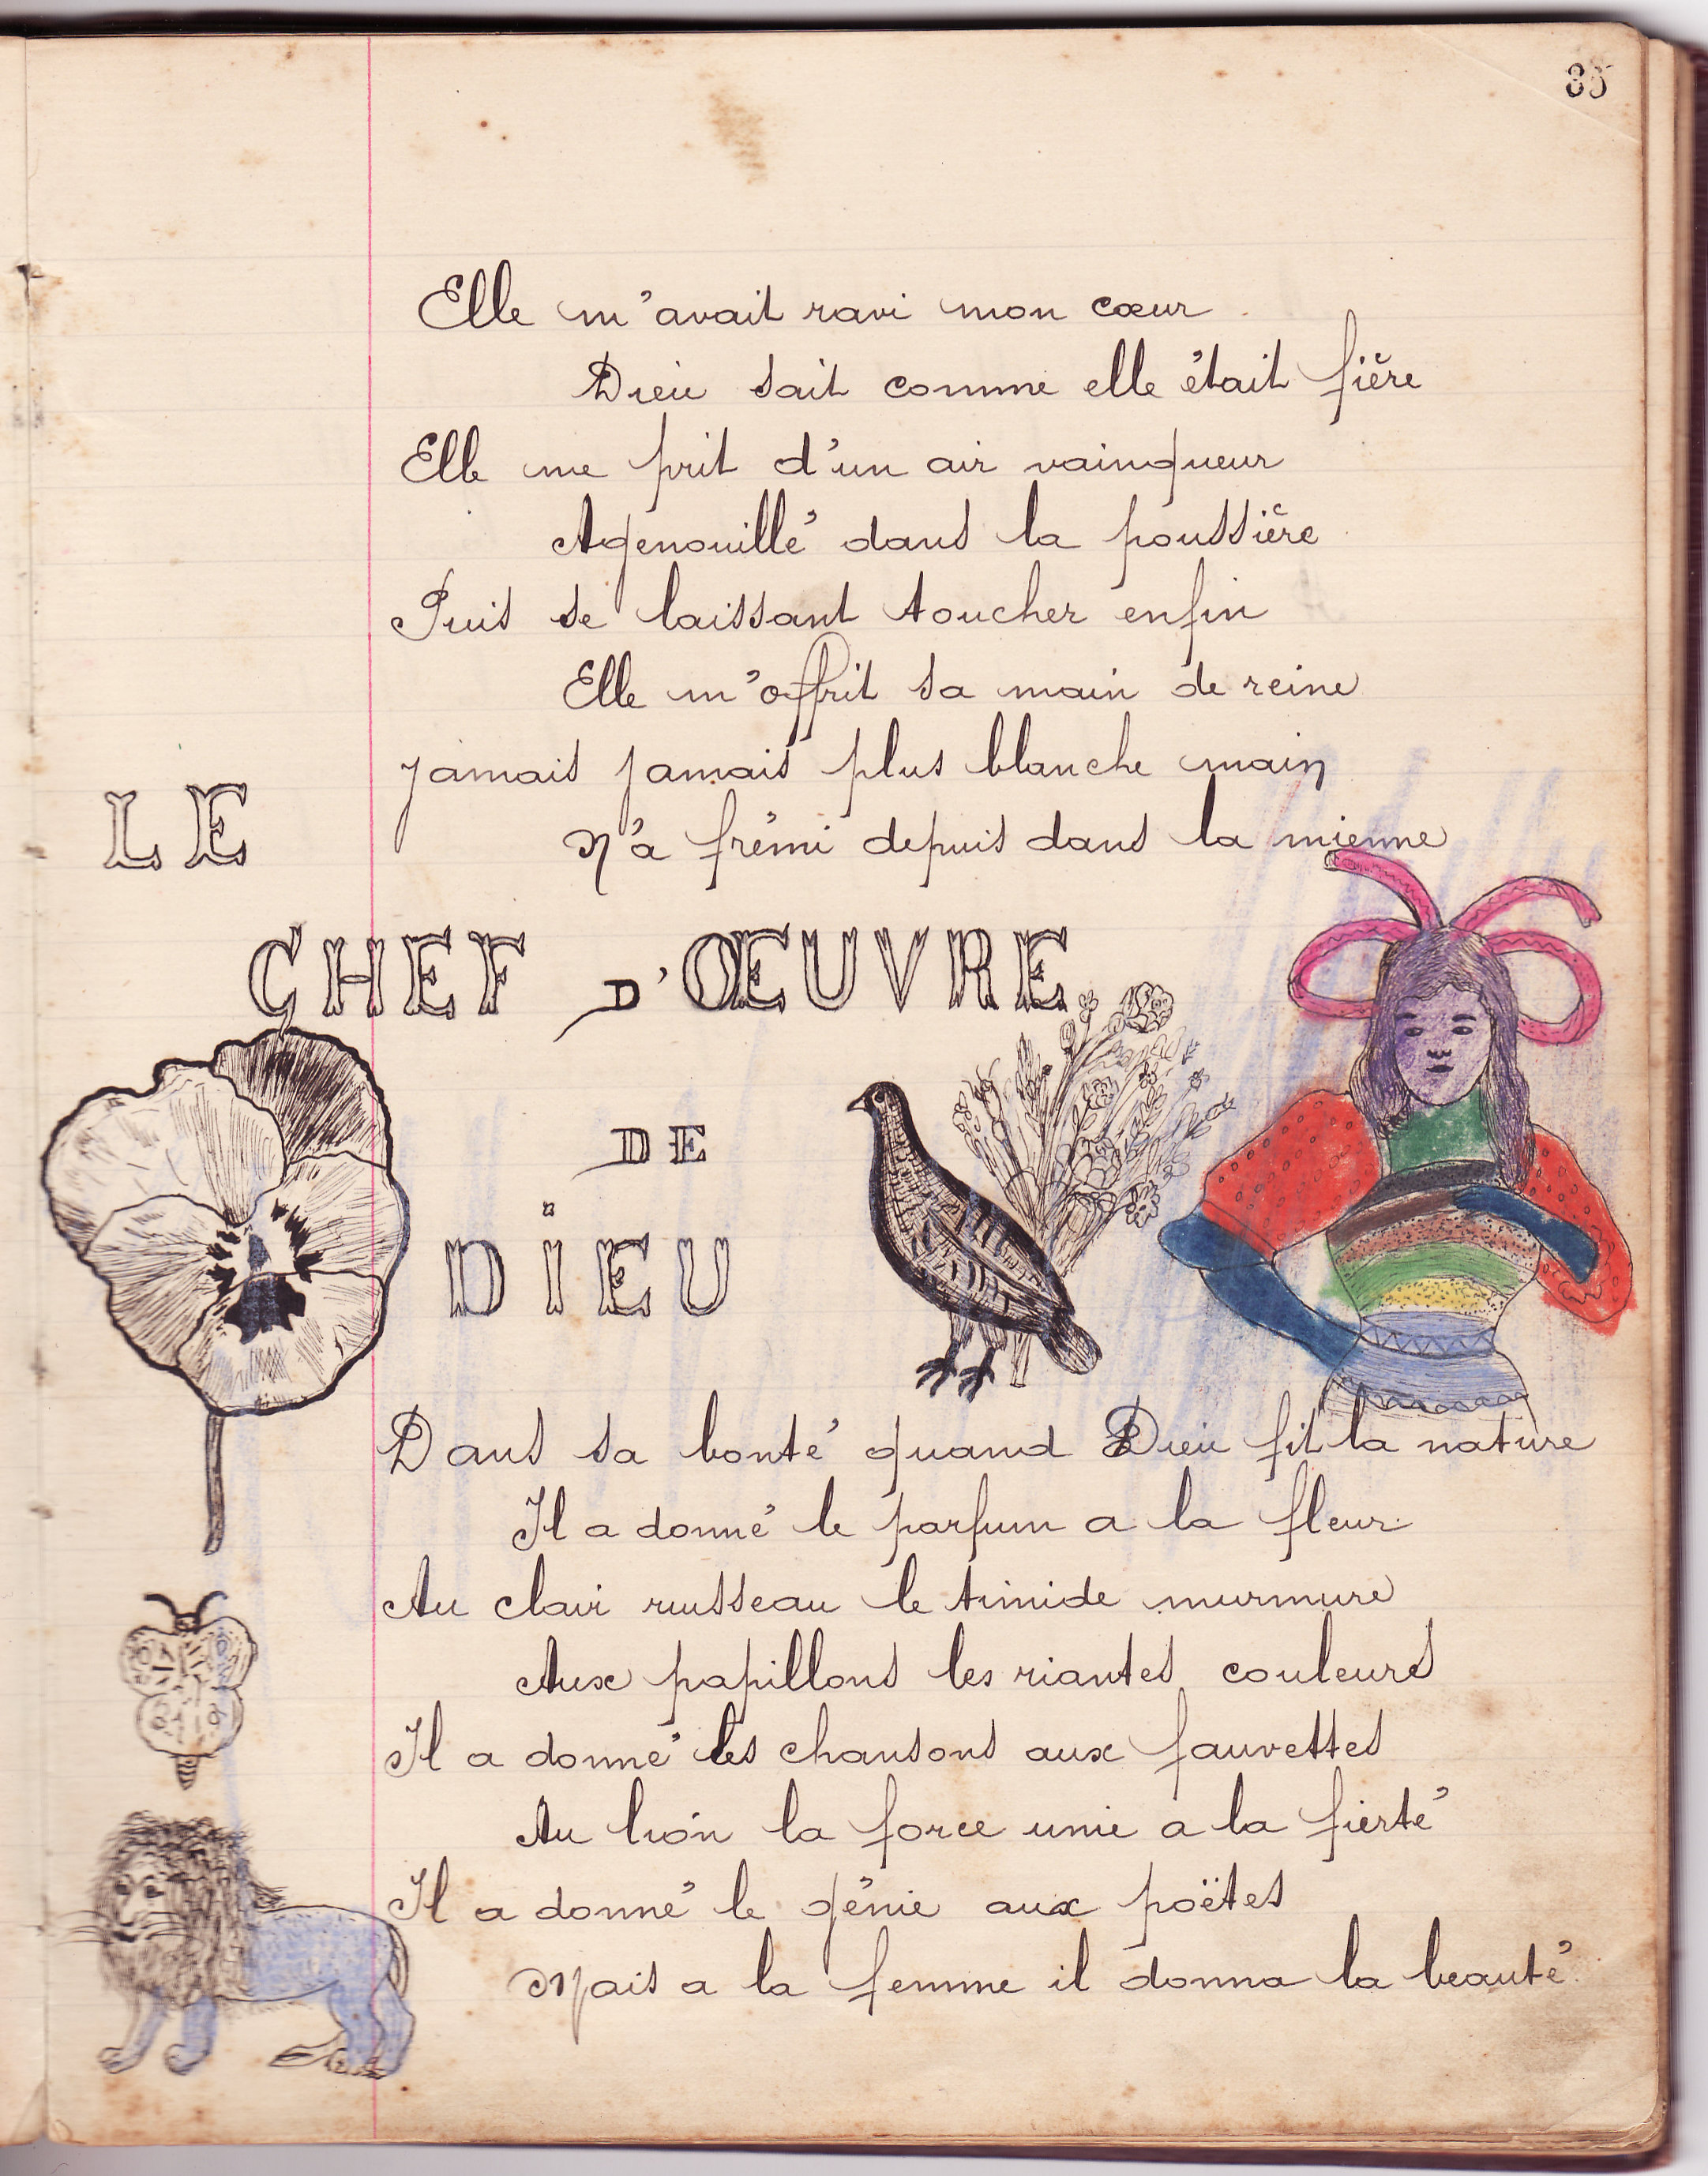 85
Elle m'avait ravi mon cœur
Dieu sait comme elle était fière
Elle me prit d'un air vainqueur
Agenouillé dans la poussière
Puis se laissant toucher enfin
Elle m'offrit sa main de reine
jamais jamais plus blanche main
N'a frémi depuis dans la mienne
LE
CHEF D'ŒUVRE
DE
DIEU
Dans sa bonté quand Dieu fit la nature
Il a donné le parfum a la fleur
Au clair ruisseau le timide murmure
Aux papillons les riantes couleurs
Il a donné les chansons aux fauvettes
Au lion la force unie a la fierté
Il a donné le génie aux poëtes
Mais a la femme il donna la beauté